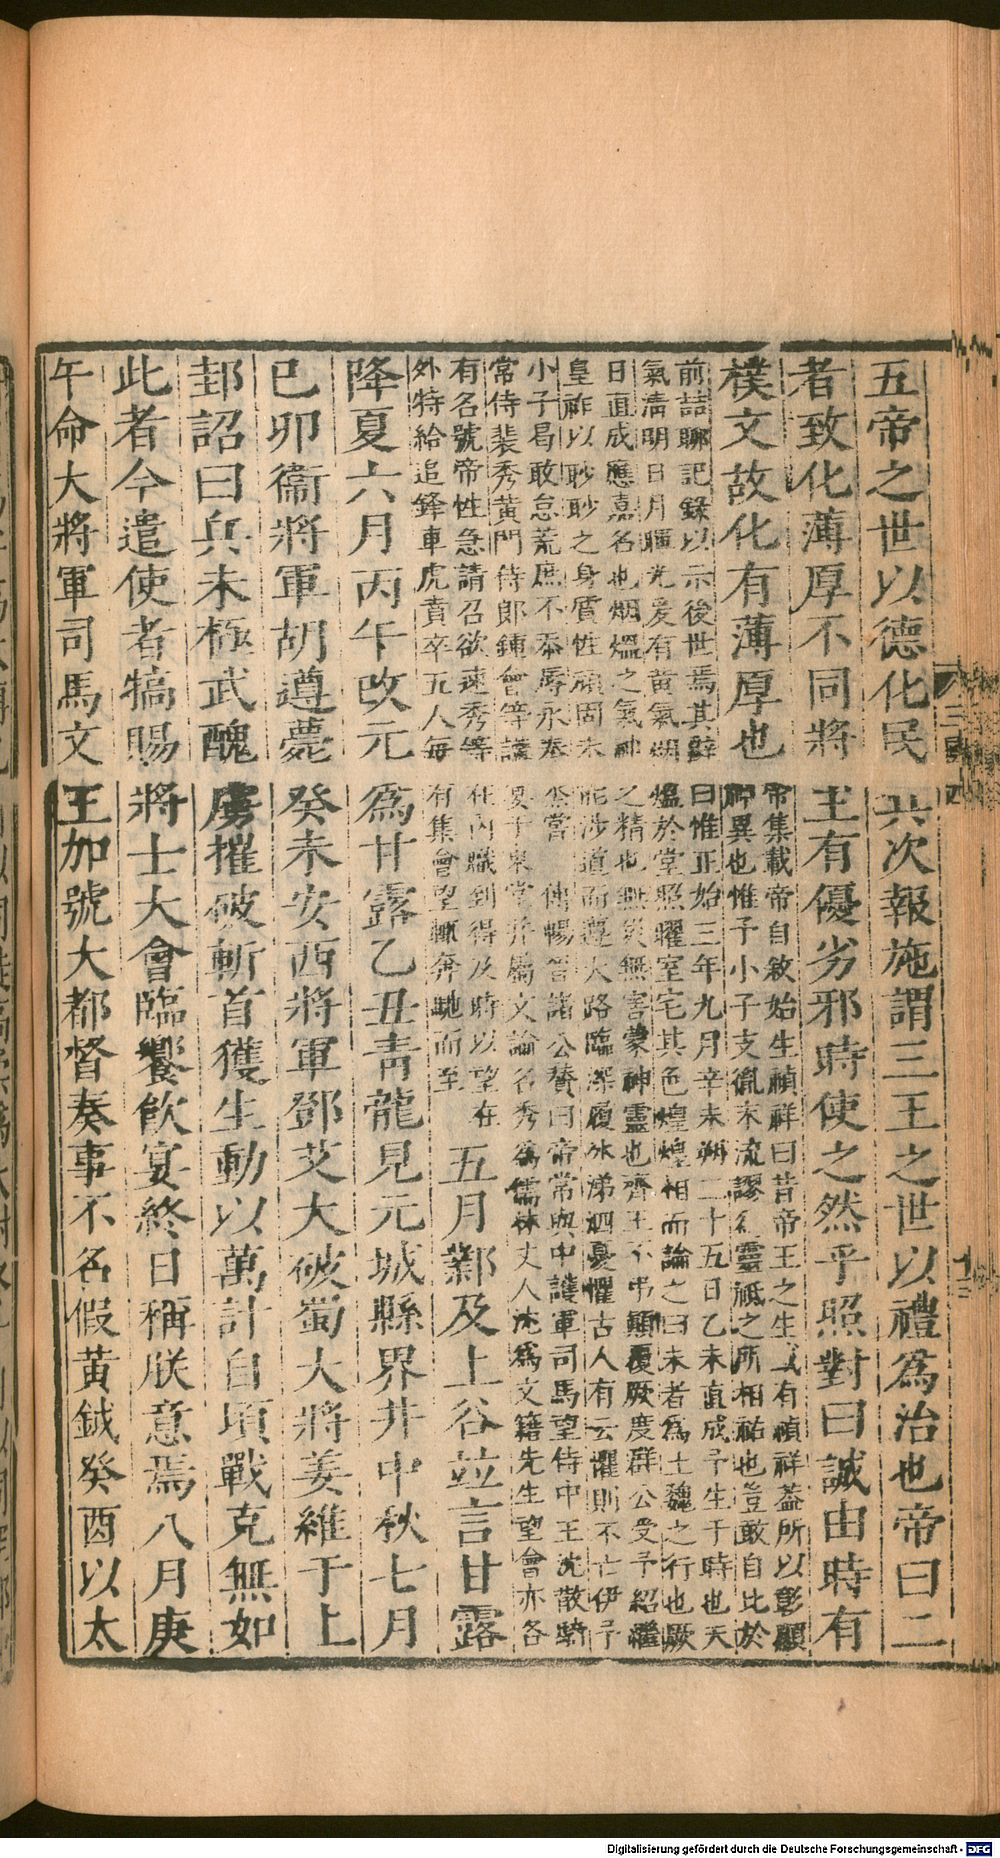 五帝之世以德化民共次報施謂三王之世以禮爲治也帝曰二
者致化薄厚不同將主有優劣邪時使之然乎照對曰誠由時有
樸文故化有薄厚也
帝集載帝自敘始生禎祥曰昔帝王之生或有禎祥葢所以彰顯
神異也惟予小子支胤末流謬爲靈祗之所相祐也豈敢自比於
前喆聊記錄以示後世焉其辭曰惟正始三年九月辛未朔二十五日乙未直成予生于時也天
氣清明日月暉光爰有黃氣烟熅於堂照曜室宅其色煌煌相而論之曰未者爲土魏之行也厥
日直成應嘉名也烟熅之氣神之精也無災無害蒙神靈也齊王不弔顛覆厥度群公受予紹繼
皇祚以眇眇之身質性頑固未能涉道而遵大路臨深履冰涕泗憂懼古人有云懼則不亡伊予
小子曷敢怠荒庶不忝辱永奉烝嘗 傅暢晉諸公贊曰帝常與中護軍司馬望侍中王沈散騎
常侍裴秀黃門侍郎鍾會等講宴于東堂并屬文論名秀爲儒林丈人沈爲文籍先生望會亦各
有名號帝性急請召欲速秀等在內職到得及時以望在
外特給追鋒車虎賁卒五人每有集會望輒奔馳而至
五月鄴及上谷竝言甘露
降夏六月丙午改元爲甘露乙丑青龍見元城縣界井中秋七月
已卯衞將軍胡遵薨癸未安西將軍鄧艾大破蜀大將姜維于上
邽詔曰兵未極武醜虜摧破斬首獲生動以萬計自頃戰克無如
此者今遣使者犒賜將士大會臨饗飲宴終日稱朕意焉八月庚
午命大將軍司馬文王加號大都督奏事不名假黃鉞癸酉以太
Digitalisierung gefördert durch die Deutsche Forschungsgemeinschaft - DFG